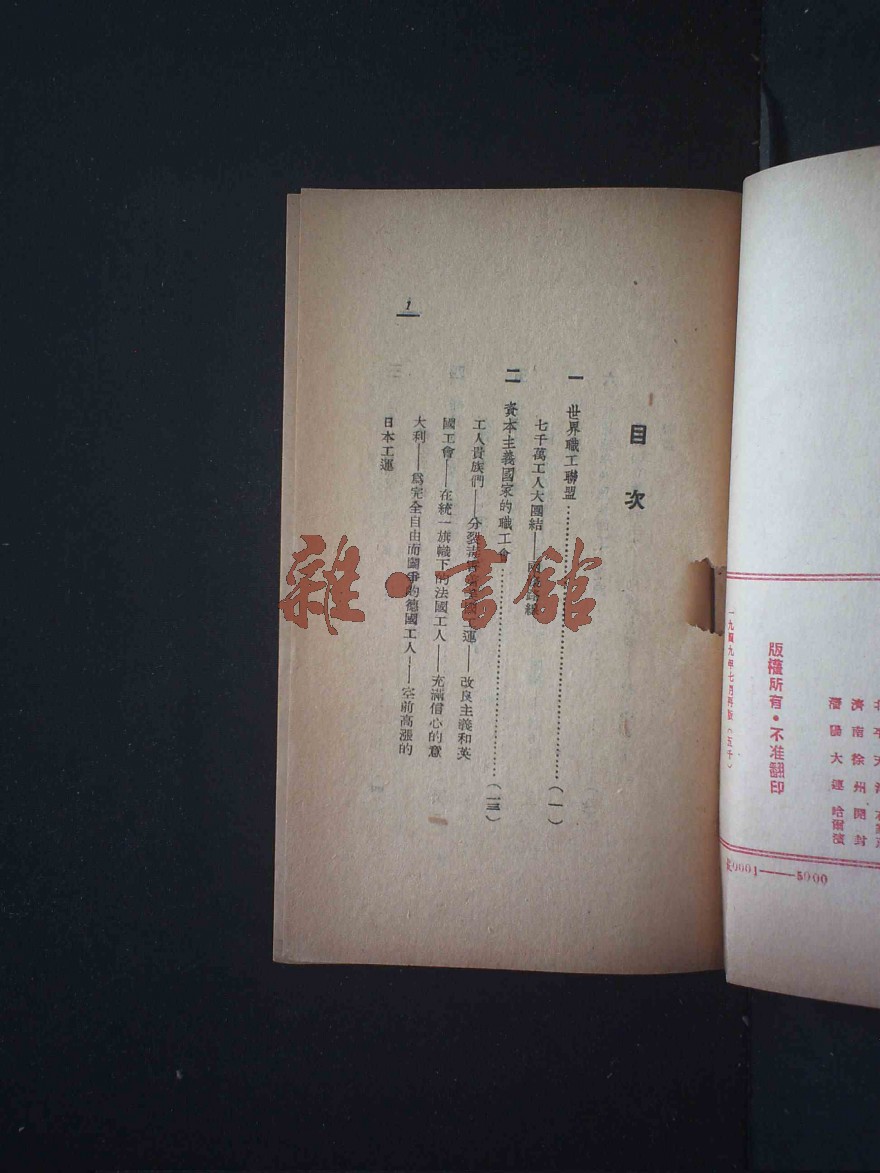 濟南 徐州 開封
瀋陽 大連 哈爾濱
版權所有·不准翻印
一九四九年七月再版(五千)
0001——5000
目次
一 世界職工聯盟……(一)
七千萬工人大團結——兩條路線
二 資本主義國家的職工會……(一三)
工人貴族們——分裂 工運——改良主義和英
國工會——在統一旗幟下的法國工人——充滿信心的意
大利——爲完全自由而鬭爭的德國工人——空前高漲的
日本工運
1
雜·書館